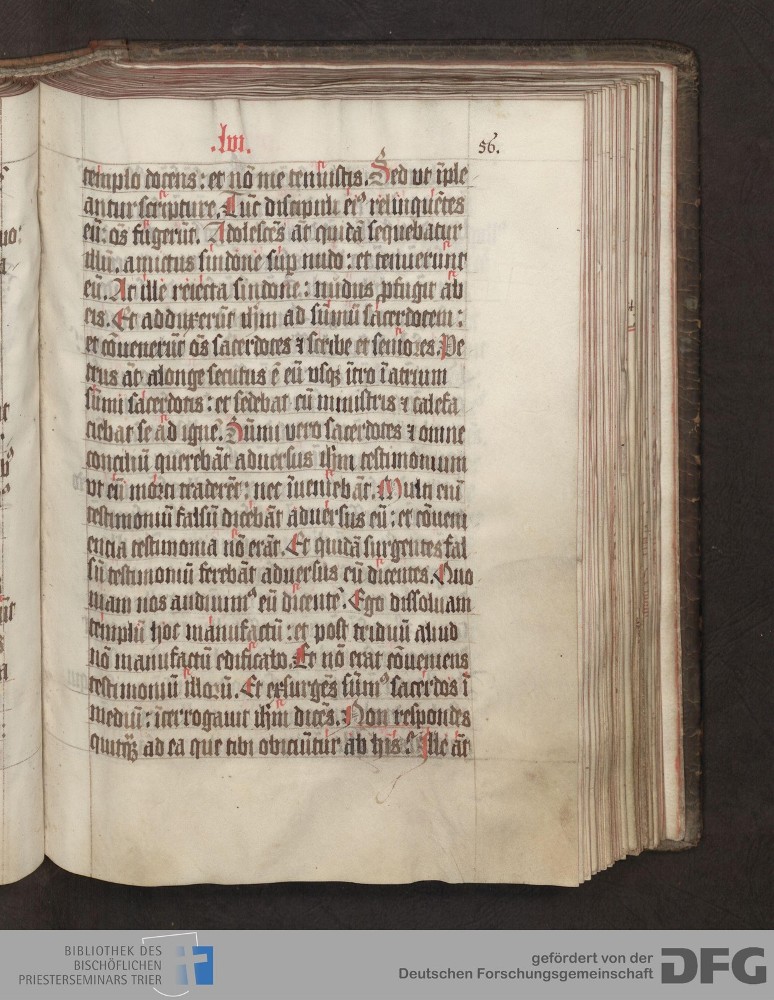 .lvi.
56.
templo docens: et nō me tenuistis. Sed ut īple
antur scripture. Tūc discipuli eiꝰ relinquētes
eū: oēs fugerūt. Adolescēs āt quidā sequebatur
illū. amictus sindone sup nudo: et tenuerunt
eū. At ille reiecta sindone: nudus ꝓfugit ab
eis. Et adduxerūt ihm̄ ad sūmū sacerdotem:
et cōuenerūt oēs sacerdotes ⁊ scribe et seniores. Pe
trus āt alonge secutus ē eū usqꝫ ītro ī atrium
sūmi sacerdotis: et sedebat cū ministris ⁊ calefa
ciebat se ad ignē. Sūmi vero sacerdotes ⁊ omne
conciliū querebāt aduersus ihm̄ testimonium
ut eū morti traderēt: nec īueniebāt. Multi enī
testimoniū falsū dicebāt aduersus eū: et cōueni
encia testimonia nō erāt. Et quidā surgentes fal
sū testimoniū ferebāt aduersus eū dicentes. Quo
niam nos audiuimꝰ eū dicentē. Ego dissoluam
templū hoc manufactū: et post triduū aliud
nō manufactū edificabo. Et nō erat cōueniens
testimoniū illorū. Et exsurgēs sūmꝰ sacerdos ī
mediū: īterrogauit ihm̄ dicēs. Non respondes
quitqꝫ ad ea que tibi obiciūtur ab his? Ille āt
BIBLIOTHEK DES
BISCHÖFLICHEN
PRIESTERSEMINARS TRIER
gefördert von der
Deutschen Forschungsgemeinschaft
DFG